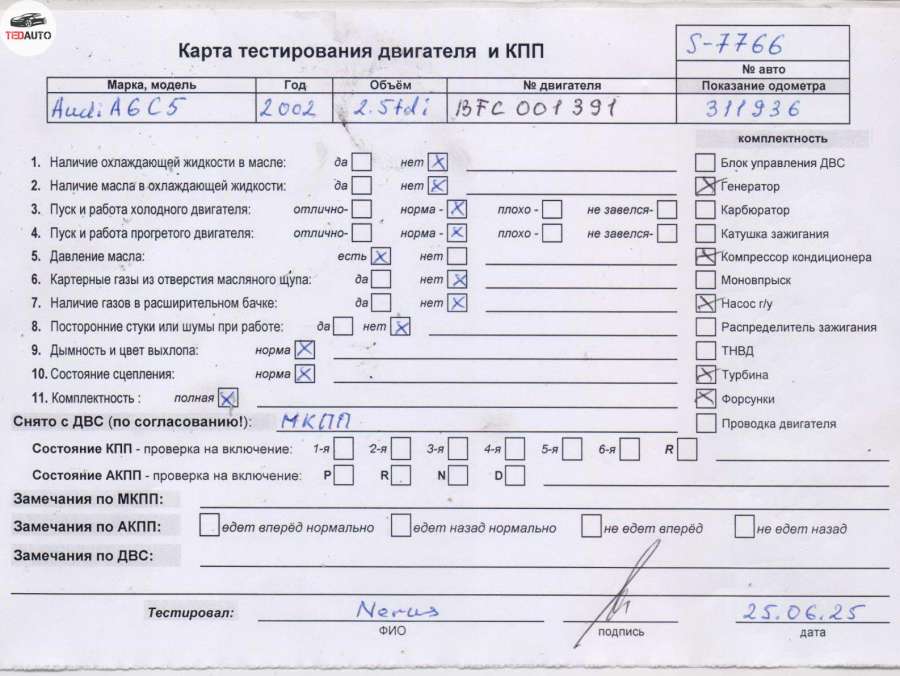 TEDAUTO
Карта тестирования двигателя и КПП
S-7766
№ авто
Марка, модель Год Объём № двигателя Показание одометра
Audi A6 C5 2002 2.5tdi BFC 001391 311936
комплектность
1. Наличие охлаждающей жидкости в масле: да нет X Блок управления ДВС
2. Наличие масла в охлаждающей жидкости: да нет X X Генератор
3. Пуск и работа холодного двигателя: отлично- норма - X плохо - не завелся- Карбюратор
4. Пуск и работа прогретого двигателя: отлично- норма - X плохо - не завелся- Катушка зажигания
5. Давление масла: есть X нет X Компрессор кондиционера
6. Картерные газы из отверстия масляного щупа: да нет X Моновпрыск
7. Наличие газов в расширительном бачке: да нет X X Насос г/у
8. Посторонние стуки или шумы при работе: да нет X Распределитель зажигания
9. Дымность и цвет выхлопа: норма X ТНВД
10. Состояние сцепления: норма X X Турбина
11. Комплектность : полная X X Форсунки
Снято с ДВС (по согласованию!): МКПП Проводка двигателя
Состояние КПП - проверка на включение: 1-я 2-я 3-я 4-я 5-я 6-я R
Состояние АКПП - проверка на включение: P R N D
Замечания по МКПП:
Замечания по АКПП: едет вперёд нормально едет назад нормально не едет вперёд не едет назад
Замечания по ДВС:
Тестировал: Nerus 25.06.25
ФИО подпись дата